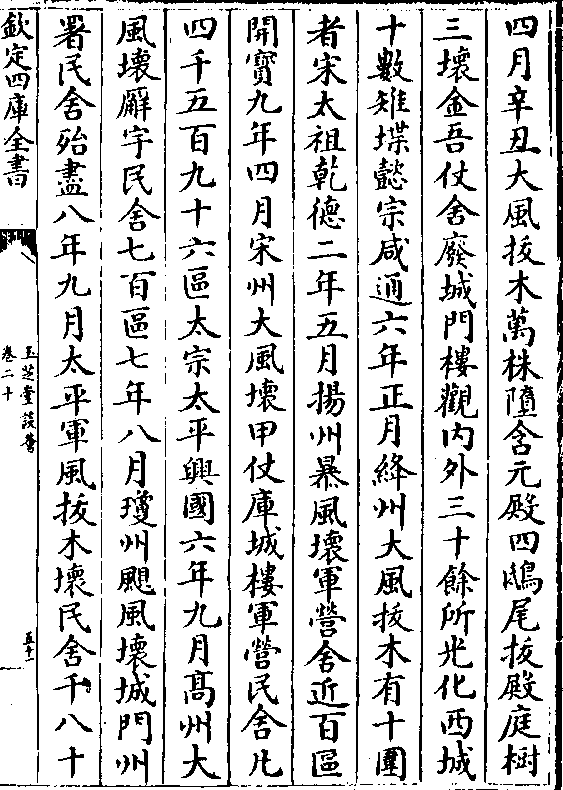 四月辛丑大風拔木萬株墮含元殿四鴟尾拔殿庭樹
三壞金吾仗舍廢城門樓觀内外三十餘所光化西城
十數雉堞懿宗咸通六年正月絳州大風拔木有十圍
者宋太祖乾德二年五月揚州暴風壞軍營舍近百區
開寳九年四月宋州大風壞甲仗庫城樓軍營民舍凡
四千五百九十六區太宗太平興國六年九月髙州大
風壞廨宇民舍七百區七年八月瓊州颶風壞城門州
署民舍殆盡八年九月太平軍風拔木壞民舍千八十
欽定四庫全書
玉芝堂談薈
卷二十